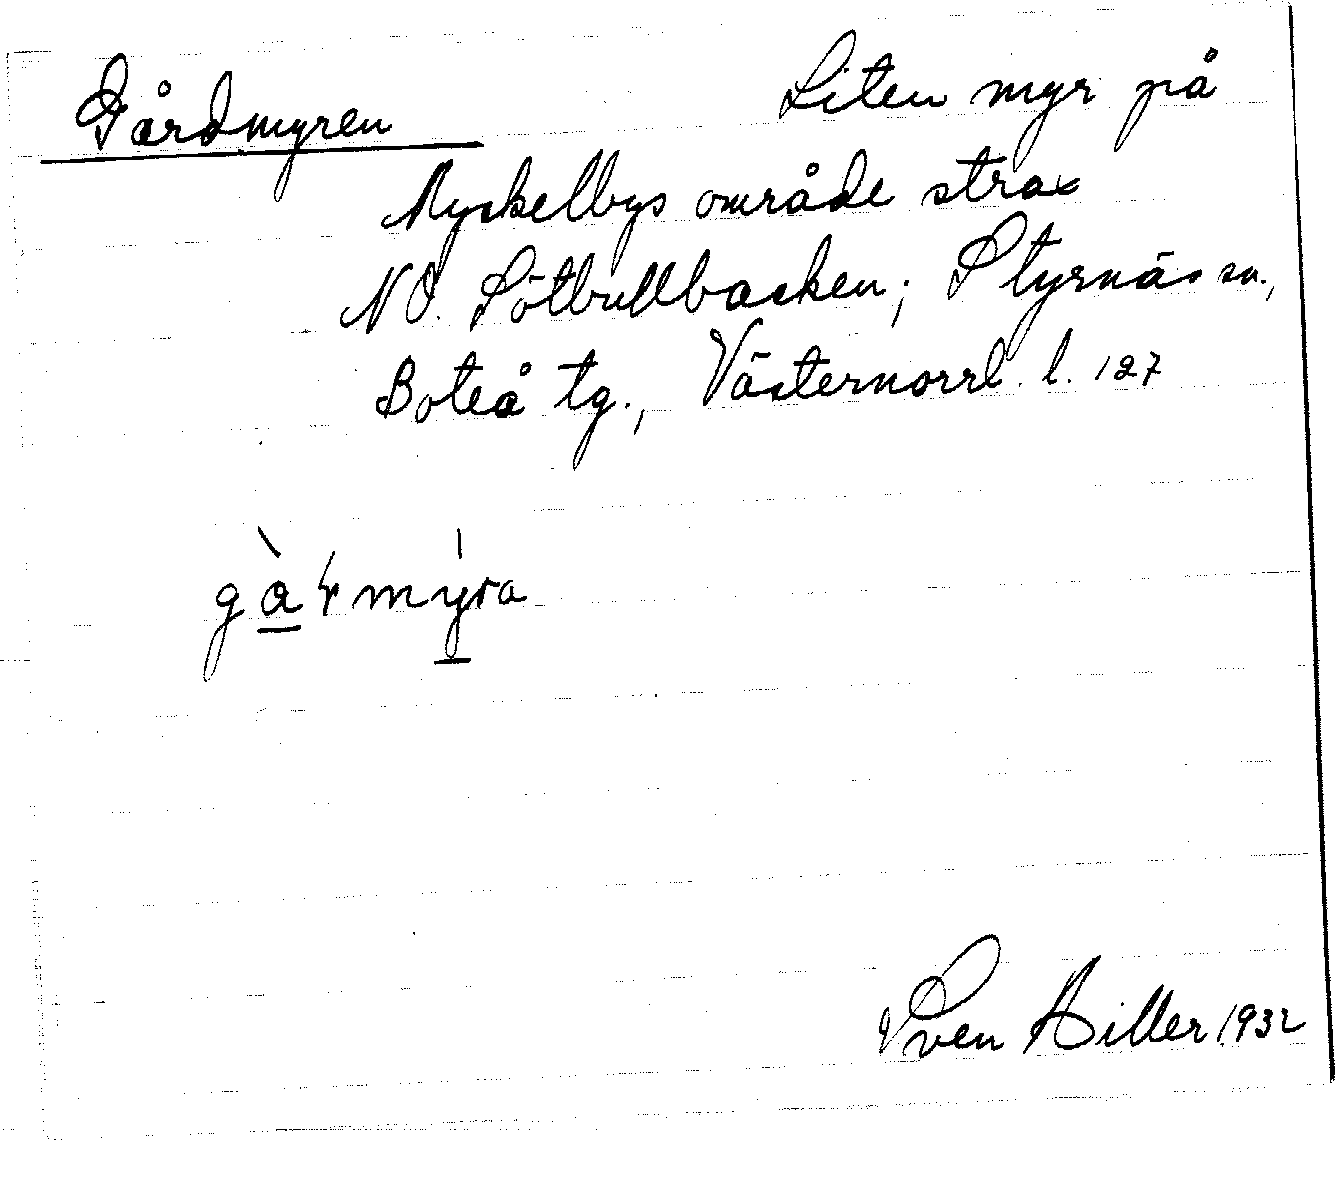 Gårdmyren Liten myr på
Myckelbys område strax
NO. Sötbullbacken; Styrnäs sn.,
Boteå tg., Västernorrl. l. 127
gàrmýra
Sven Hiller 1932